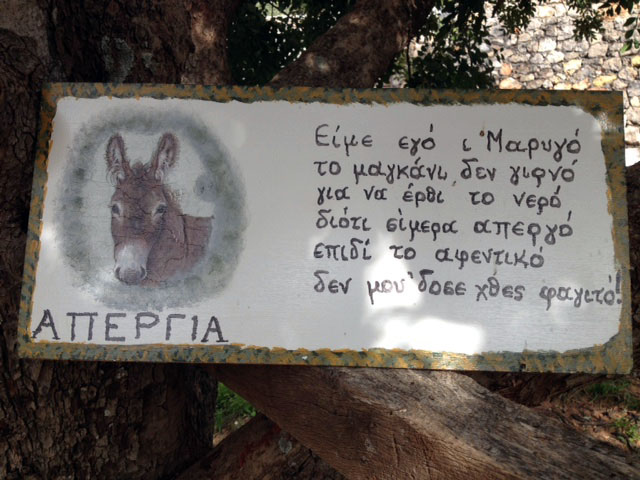 Είμε εγό ι Μαρυγό
το μαγκάνι δεν γιρνό
για να έρθι το νερό
διότι σίμερα απεργό
επιδί το αφεντικό
δεν μου δοσε χθες φαγιτό!
ΑΠΕΡΓΙΑ